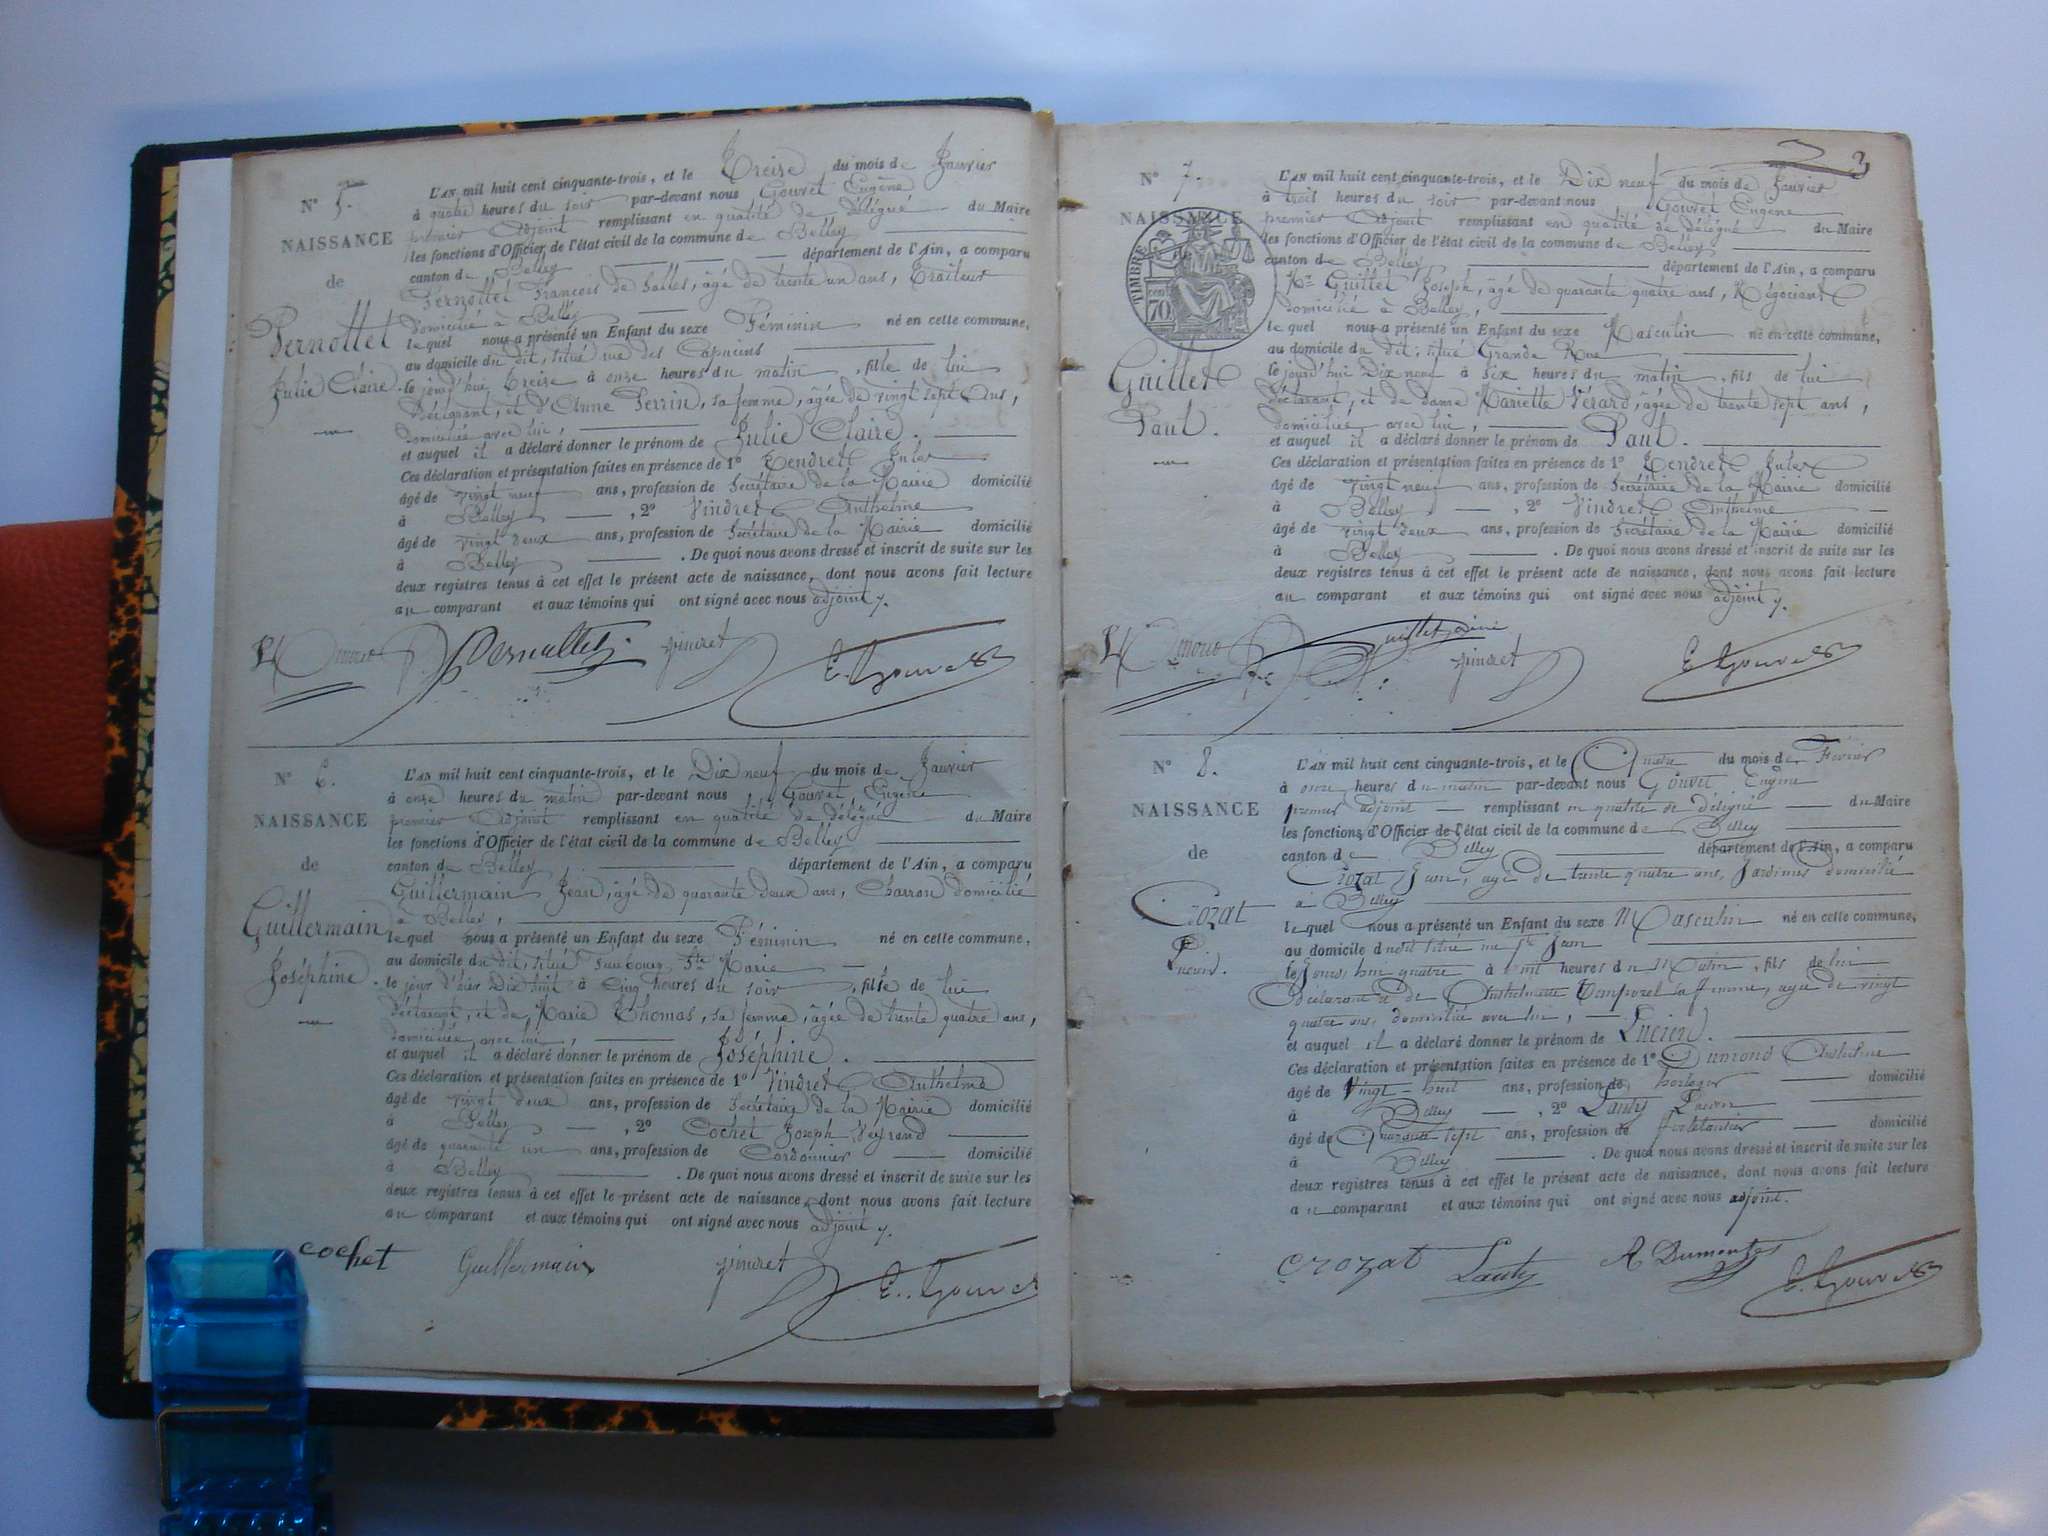 N° 5.
NAISSANCE
de
Pernollet
Julie Claire.
L'AN mil huit cent cinquante-trois, et le Treise du mois de Janvier
à quatre heures du soir par-devant nous Gouvet Eugène
premier Adjoint remplissant en qualité de délégué du Maire
les fonctions d'Officier de l'état civil de la commune de Belley
canton de Belley département de l'Ain, a comparu
Pernollet François de Salles, âgé de trente un ans, Traiteur
domicilié à Belley
le quel nous a présenté un Enfant du sexe Féminin né en cette commune,
au domicile du dit, situé rue des Capucins
le jourd'hui Treise à onze heures du matin, fille de lui
Déclarant, et d'Anne Perrin, sa femme, âgée de vingt sept ans,
domiciliée avec lui,
et auquel il a déclaré donner le prénom de Julie Claire.
Ces déclaration et présentation faites en présence de 1° Tendret Jules
âgé de vingt neuf ans, profession de Secrétaire de la Mairie domicilié
à Belley, 2° Vindret Anthelme
âgé de vingt deux ans, profession de Secrétaire de la Mairie domicilié
à Belley. De quoi nous avons dressé et inscrit de suite sur les
deux registres tenus à cet effet le présent acte de naissance, dont nous avons fait lecture
au comparant et aux témoins qui ont signé avec nous adjoint
Pernollet Vindret E. Gouvet
N° 6.
NAISSANCE
de
Guillermain
Joséphine.
L'AN mil huit cent cinquante-trois, et le Dix neuf du mois de Janvier
à onze heures du matin par-devant nous Gouvet Eugène
premier Adjoint remplissant en qualité de délégué du Maire
les fonctions d'Officier de l'état civil de la commune de Belley
canton de Belley département de l'Ain, a comparu
Guillermain Jean, âgé de quarante deux ans, Charron domicilié
à Belley,
le quel nous a présenté un Enfant du sexe Féminin né en cette commune,
au domicile du dit, situé faubourg Ste Marie
le jour d'hier Dix huit à Cinq heures du soir, fille de lui
déclarant, et de Marie Thomas, sa femme, âgée de trente quatre ans,
domiciliée avec lui,
et auquel il a déclaré donner le prénom de Joséphine.
Ces déclaration et présentation faites en présence de 1° Vindret Anthelme
âgé de vingt deux ans, profession de Secrétaire de la Mairie domicilié
à Belley, 2° Cochet Joseph Veyrend
âgé de quarante un ans, profession de Cordonnier domicilié
à Belley. De quoi nous avons dressé et inscrit de suite sur les
deux registres tenus à cet effet le présent acte de naissance, dont nous avons fait lecture
au comparant et aux témoins qui ont signé avec nous adjoint
cochet Guillermain Vindret E. Gouvet
3
N° 7.
NAISSANCE
TIMBRE
70
Guillet
Paul.
L'AN mil huit cent cinquante-trois, et le Dix neuf du mois de Janvier
à trois heures du soir par-devant nous Gouvet Eugène
premier Adjoint remplissant en qualité de délégué du Maire
les fonctions d'Officier de l'état civil de la commune de Belley
canton de Belley département de l'Ain, a comparu
Mr Guillet Joseph, âgé de quarante quatre ans, Négociant
domicilié à Belley,
le quel nous a présenté un Enfant du sexe Masculin né en cette commune,
au domicile du dit, situé Grande Rue
le jourd'hui Dix neuf à six heures du matin, fils de lui
déclarant, et de dame Mariette Vérard, âgée de trente sept ans,
domiciliée avec lui,
et auquel il a déclaré donner le prénom de Paul.
Ces déclaration et présentation faites en présence de 1° Tendret Jules
âgé de vingt neuf ans, profession de Secrétaire de la Mairie domicilié
à Belley, 2° Vindret Anthelme
âgé de vingt deux ans, profession de Secrétaire de la Mairie domicilié
à Belley. De quoi nous avons dressé et inscrit de suite sur les
deux registres tenus à cet effet le présent acte de naissance, dont nous avons fait lecture
au comparant et aux témoins qui ont signé avec nous adjoint
Vindret E. Gouvet
N° 8.
NAISSANCE
de
Crozat
Lucien.
L'AN mil huit cent cinquante-trois, et le Quatre du mois de Février
à onze heures du matin par-devant nous Gouvet Eugène
premier adjoint remplissant en qualité de délégué du Maire
les fonctions d'Officier de l'état civil de la commune de Belley
canton de Belley département de l'Ain, a comparu
Crozat Jean, âgé de trente quatre ans, Jardinier domicilié
à Belley
le quel nous a présenté un Enfant du sexe Masculin né en cette commune,
au domicile du dit situé rue St Jean
le jourd'hui quatre à huit heures du Matin, fils de lui
Déclarant et de Anthelmette Temporel sa femme, agée de vingt
quatre ans, domiciliée avec lui,
et auquel il a déclaré donner le prénom de Lucien.
Ces déclaration et présentation faites en présence de 1° Dumond Anthelme
âgé de Vingt huit ans, profession de horloger domicilié
à Belley, 2° Lauty
âgé de Quarante sept ans, profession de ferblantier domicilié
à Belley. De quoi nous avons dressé et inscrit de suite sur les
deux registres tenus à cet effet le présent acte de naissance, dont nous avons fait lecture
au comparant et aux témoins qui ont signé avec nous adjoint.
crozat Lauty A Dumont E. Gouvet